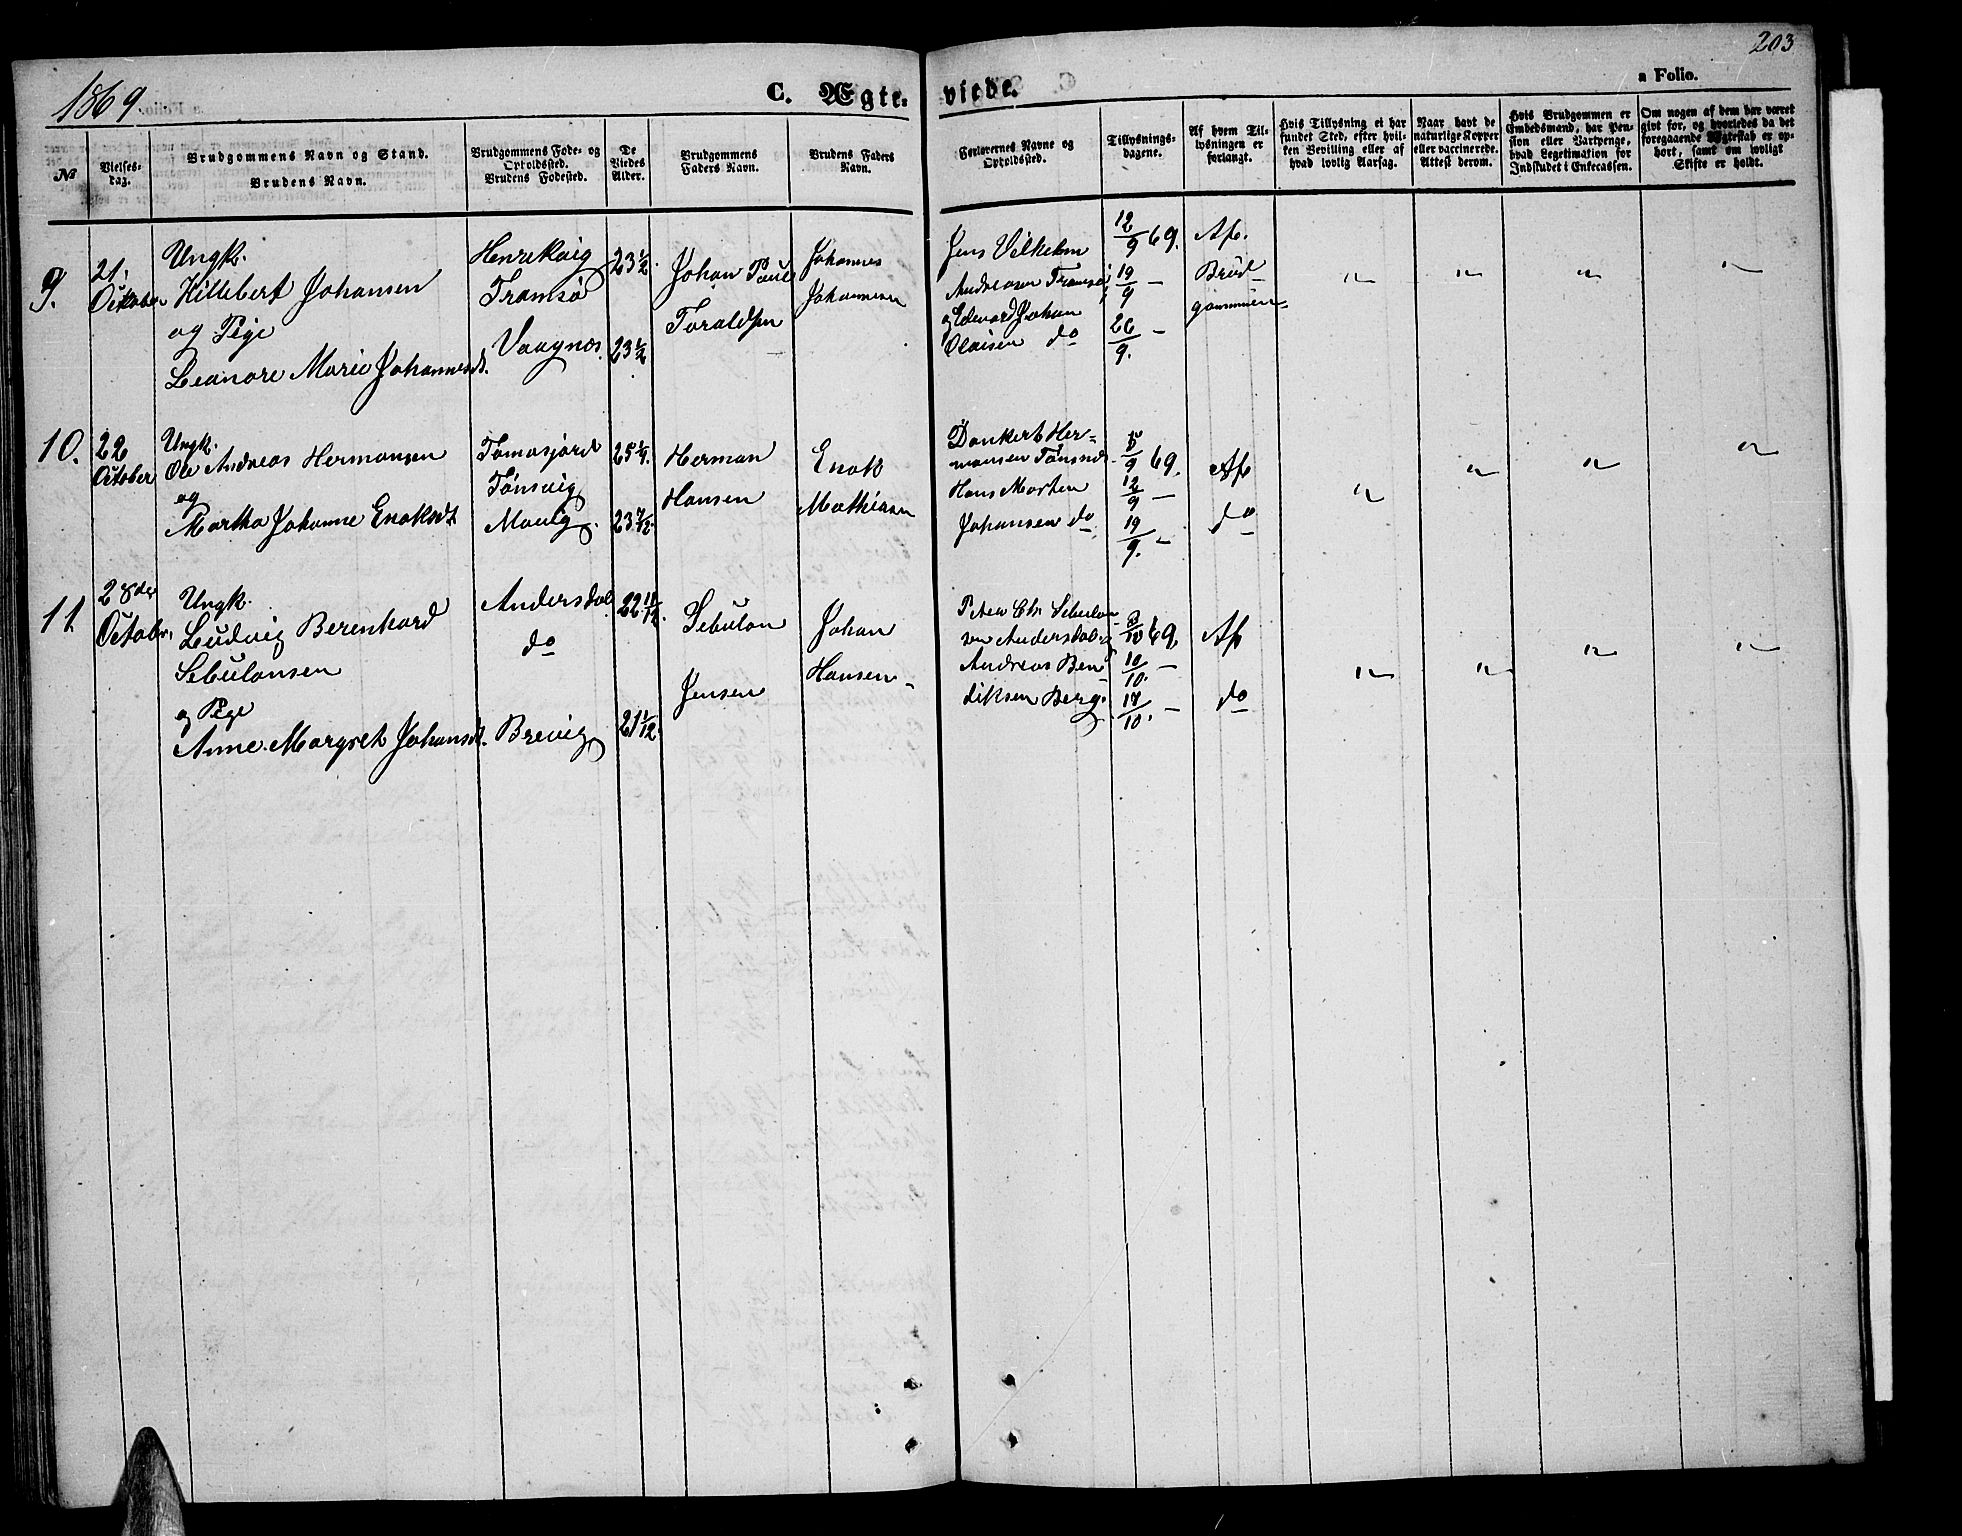 1869.
C. Ægte-
viede.
203
a Folio.
№
Vielses-
dag.
Brudgommens Navn og Stand.
Brudens Navn.
Brudgommens Føde- og
Opholdssted.
Brudens Fødested.
De
Viedes
Alder.
Brudgommens
Faders Navn.
Brudens Faders
Navn.
Forlovernes Navne og
Opholdssted.
Tillysnings-
dagene.
Af hvem Til-
lysningen er
forlangt.
Hvis Tillysning ei har
fundet Sted, efter hvil-
ken Bevilling eller af
hvad lovlig Aarsag.
Naar havt de
naturlige Kopper
eller vaccinerede.
Attest derom.
Hvis Brudgommen er
Embedsmand, har Pen-
sion eller Vartpenge,
hvad Legetimation for
Indskudet i Enkecassen.
Om nogen af dem har været
gift før, og hvorledes da det
foregaaende Ægteskab er op-
hørt, samt om lovligt
Skifte er holdt.
9.
21.
Octobr.
Ungk.
Hillebert Johansen
og Pige
Leanore Marie Johannesdt.
Henrikvig
Tromsø
Vaagnes
23 1/2
23 1/2
Johan Paul
Toraldsen
Johannes
Johannesen
Jens Vilhelm
Andreasen Tromsø
og Edevard Johan
Olaisen do
12/9 69.
19/9 —
26/9. —
Af.
Brud-
gommen
" " " "
10.
22
October
Ungk.
Ole Andreas Hermansen
og
Martha Johanne Enoksdt
Tomasjord
Tønsvig
Mavig
25 1/4.
23 7/12.
Herman
Hansen
Enok
Mathiasen
Dankert Her-
mansen Tønsnes
Hans Morten
Johansen do
5/9 69.
12/9 —
19/9. —
Af
do
" " " "
11
28de
Octobr.
Ungk.
Ludvig Berenhard
Sebulonsen
og Pige
Anne Margret Johansdt.
Andersdal
do
Brevig
22 11/12.
21 1/12.
Sebulon
Jensen
Johan
Hansen
Peter Chr. Sebulon-
sen Andersdal og
Andreas Ben-
diksen Berg
3/10 69
10/10. —
17/10. —
Af
do
" " " "